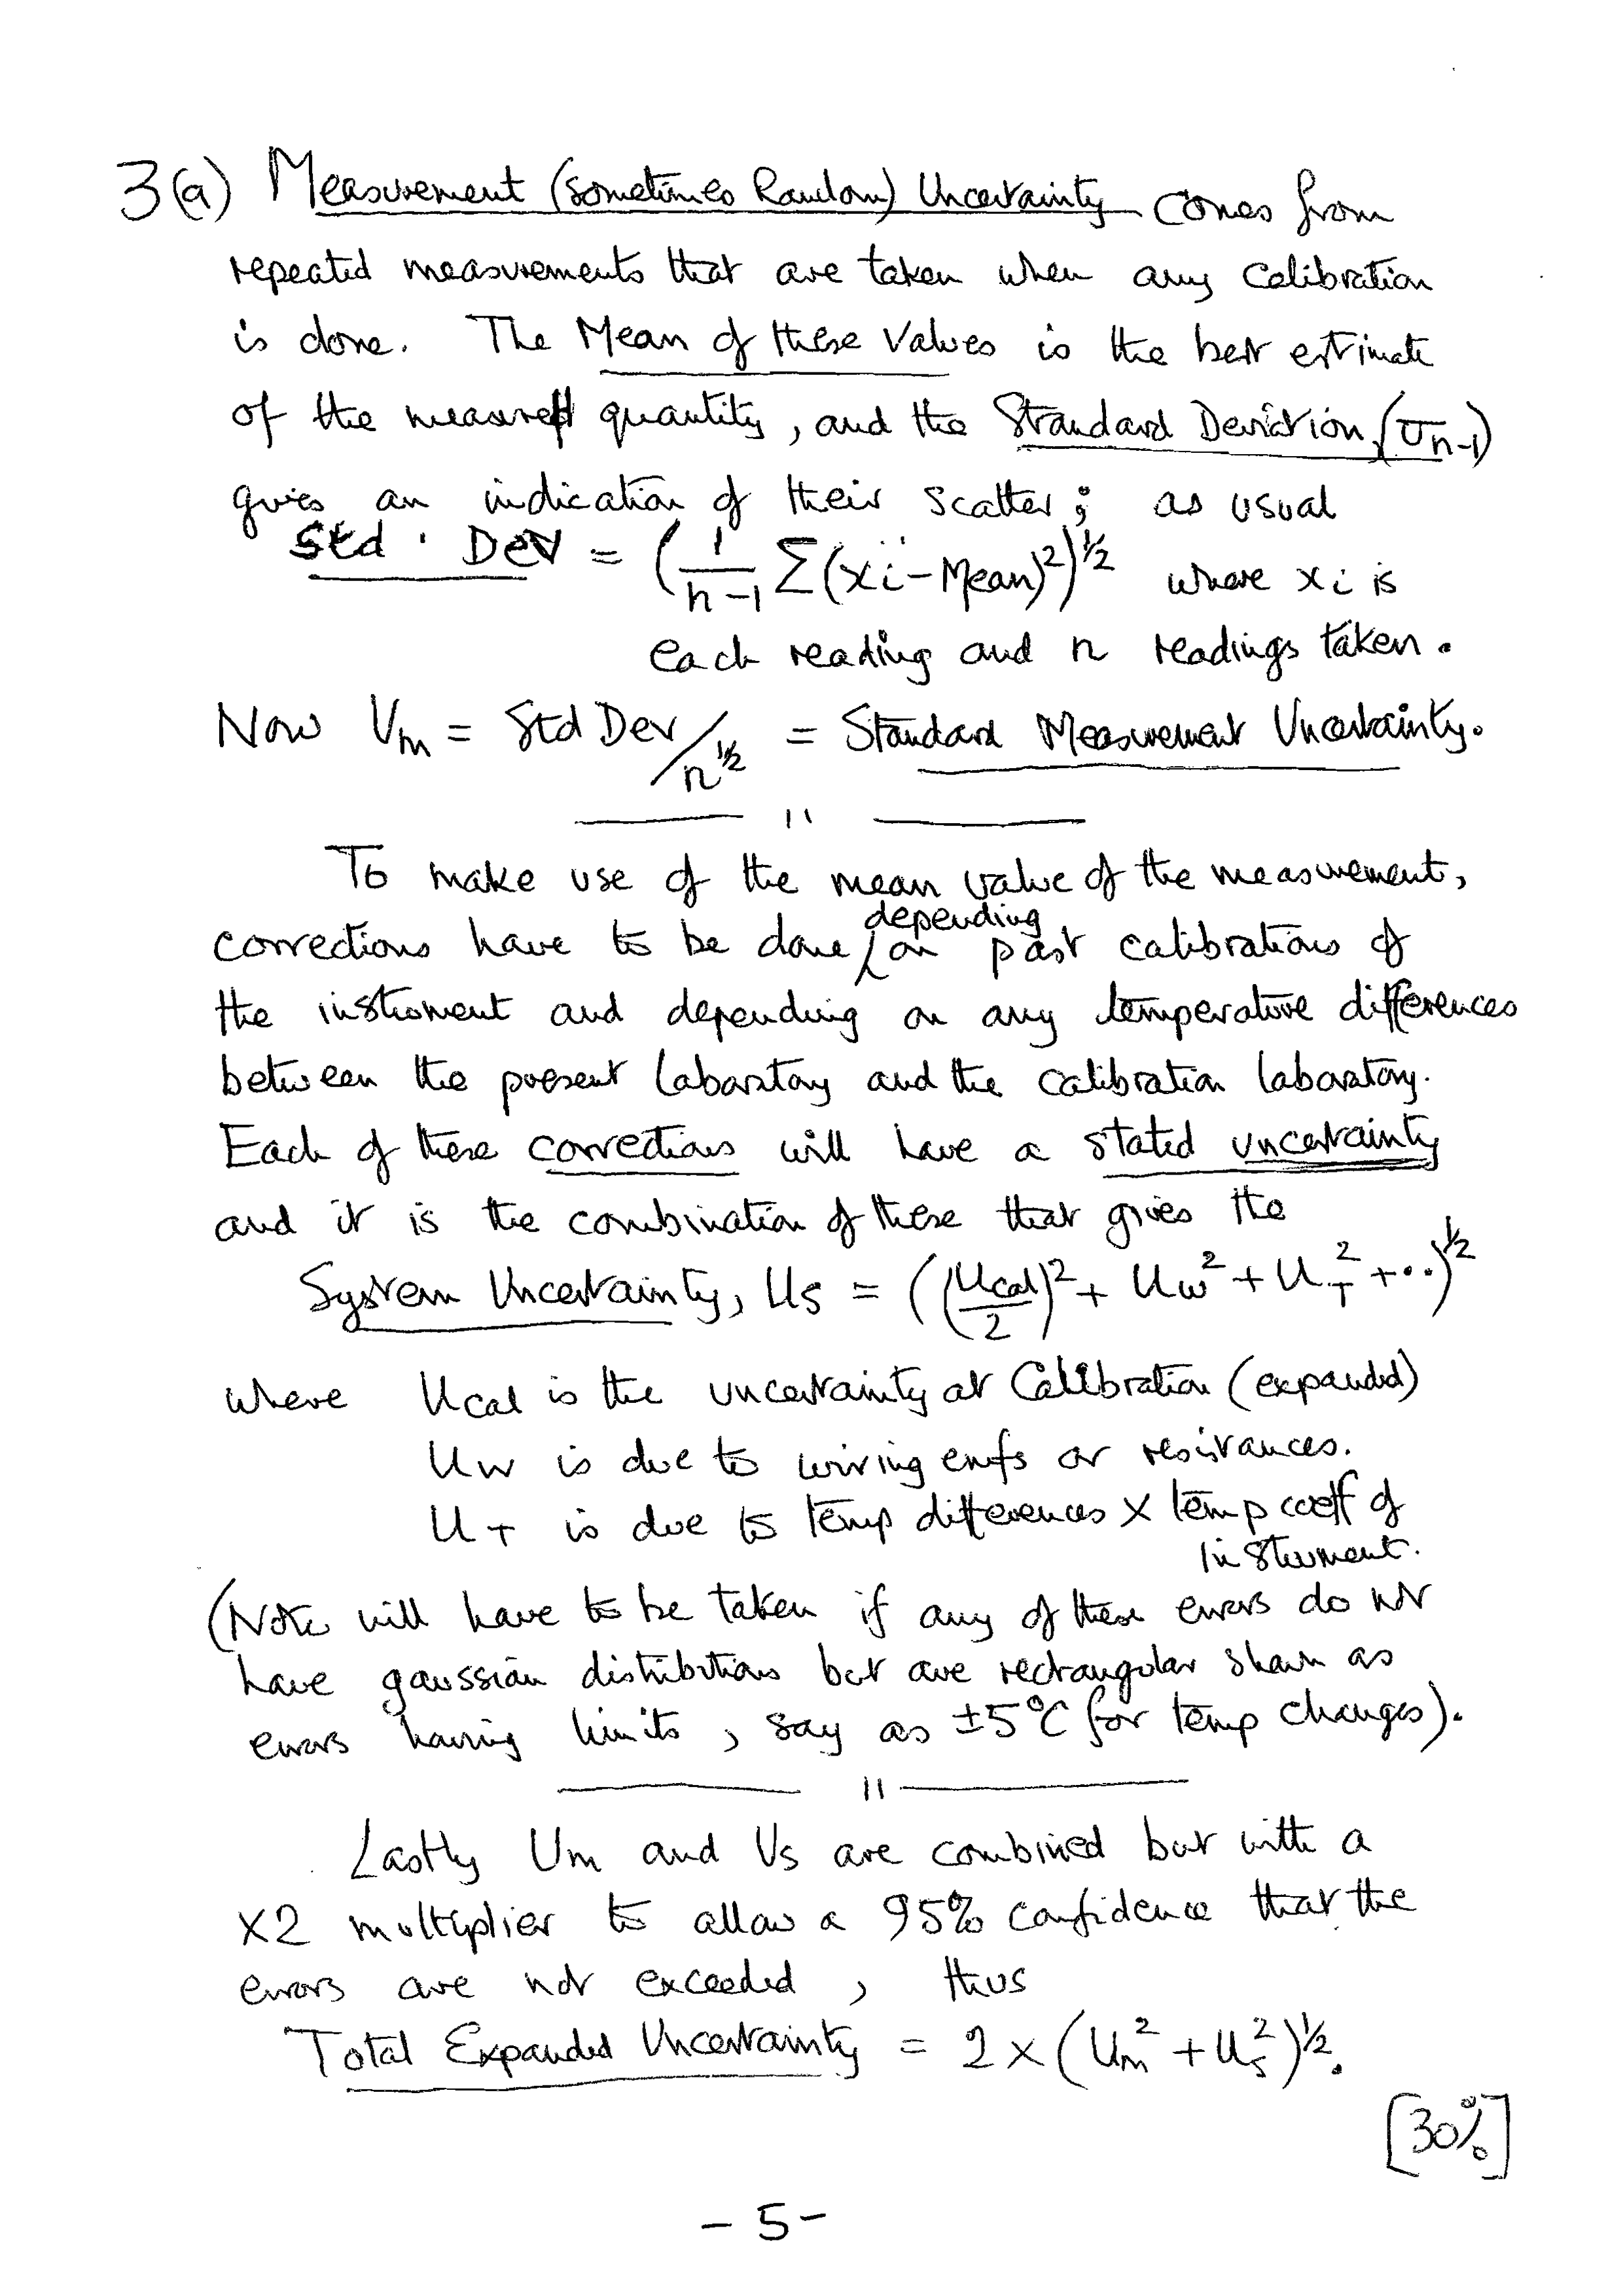 3(a) Measurement (sometimes Random) Uncertainty comes from
repeated measurements that are taken when any calibration
is done. The Mean of these Values is the best estimate
of the measured quantity, and the Standard Deviation (σn-1)
gives an indication of their scatter; as usual
Std. Dev = (1/(n-1) Σ(xi-Mean)²)^½ where xi is
each reading and n readings taken.
Now Um = Std Dev/n^½ = Standard Measurement Uncertainty.
— 11 —
To make use of the mean value of the measurement,
corrections have to be done depending on past calibrations of
the instrument and depending on any temperature differences
between the present laboratory and the calibration laboratory.
Each of these corrections will have a stated uncertainty
and it is the combination of these that gives the
System Uncertainty, Us = ((Ucal/2)² + Uw² + UT² + ..)^½
where Ucal is the uncertainty at Calibration (expanded)
Uw is due to wiring emfs or resistances.
UT is due to temp differences × temp coeff of
instrument.
(Note will have to be taken if any of these errors do not
have gaussian distributions but are rectangular shown as
errors having limits, say as ±5°C for temp changes).
— 11 —
Lastly Um and Us are combined but with a
×2 multiplier to allow a 95% confidence that the
errors are not exceeded, thus
Total Expanded Uncertainty = 2 × (Um² + Us²)^½.
[30%]
- 5 -